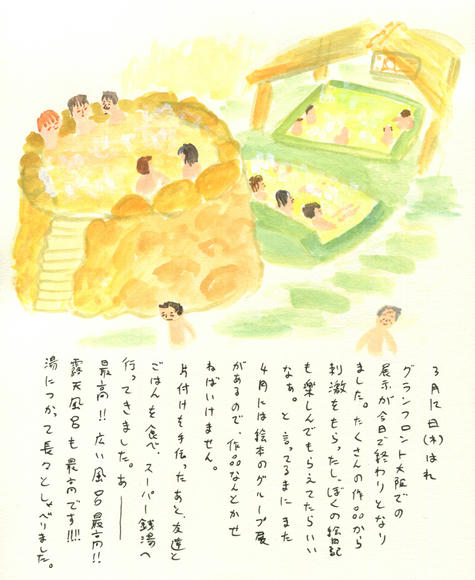 3月12日(木)はれ
グランフロント大阪での
展示が今日で終わりとなり
ました。たくさんの作品から
刺激をもらったし、ぼくの絵日記
も楽しんでもらえてたらいい
なぁ。と言ってるまにまた
4月には絵本のグループ展
があるので、作品なんとかせ
ねばいけません。
片付けを手伝ったあと、友達と
ごはんを食べ、スーパー銭湯へ
行ってきました。あ――
最高!!広い風呂最高!!
露天風呂も最高です!!!!
湯につかって長々としゃべりました。